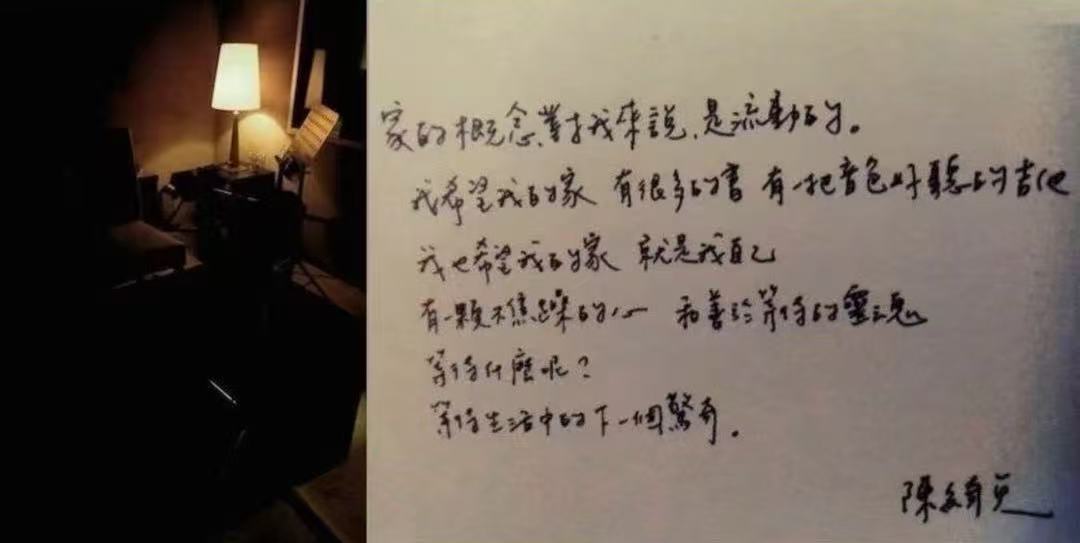 家的概念,對我來說,是流動的。
我希望我的家 有很多的書 有一把音色好聽的吉他
我也希望我的家 就是我自己
有一顆不焦躁的心 和善於等待的靈魂
等待什麼呢?
等待生活中的下一個驚奇。
陳綺貞